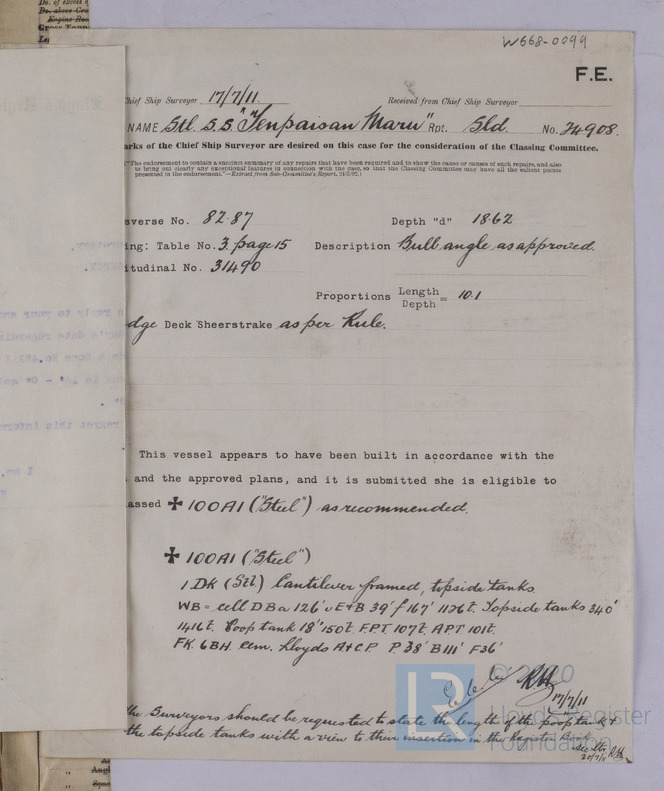 W668-0099
F.E.
Chief Ship Surveyor 17/7/11. Received from Chief Ship Surveyor
NAME Stl. S.S. "Tenpaisan Maru" Rpt. Sld. No. 34908.
arks of the Chief Ship Surveyor are desired on this case for the consideration of the Classing Committee.
("The endorsement to contain a succinct summary of any repairs that have been required and to show the cause or causes of such repairs, and also
to bring out clearly any exceptional features in connection with the case, so that the Classing Committee may have all the salient points
presented in the endorsement."—Extract from Sub-Committee's Report,
sverse No. 82.87 Depth "d" 18.62
ing: Table No. 3. page 15 Description Bulb angle as approved.
itudinal No. 31490
Proportions Length
Depth = 10.1
dge Deck Sheerstrake as per Rule.
This vessel appears to have been built in accordance with the
and the approved plans, and it is submitted she is eligible to
assed ✠ 100A1 ("Steel") as recommended.
✠ 100A1 ("Steel")
1.DK (Stl) Cantilever framed, topside tanks
WB = cell DBa 126' u E+B 39' f 167' 1126t. Topside tanks 340'
1416t. Poop tank 18' 150t. F.P.T. 107t. A.P.T. 101t.
FK. 6BH cem. Lloyds A+C.P. P 38' B 111' F 36'
17/7/11
the Surveyors should be requested to state the length of the poop tank &
the topside tanks with a view to their insertion in the Register Book
20/7/11
LR
© 2020
Lloyd's Register
Foundation